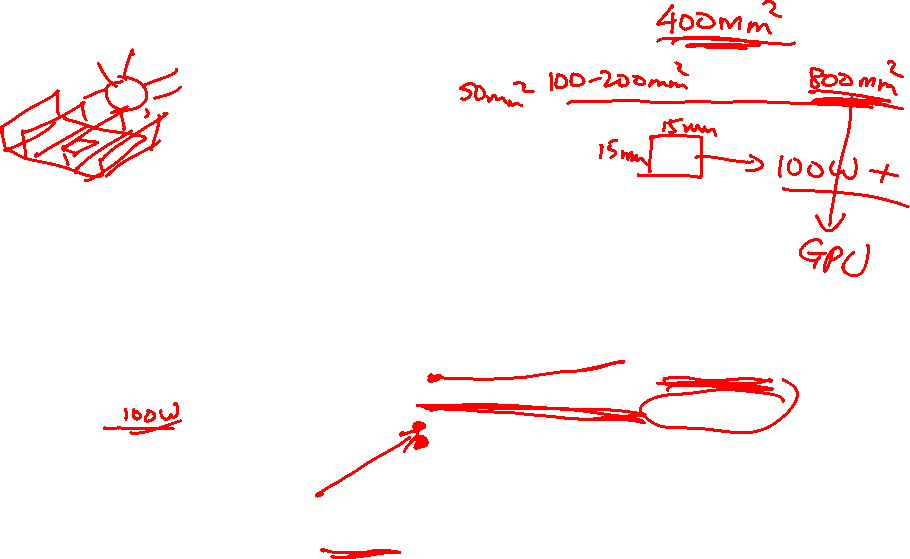 400mm²
50mm² 100-200mm² 800mm²
15mm
15mm
100W +
GPU
100W